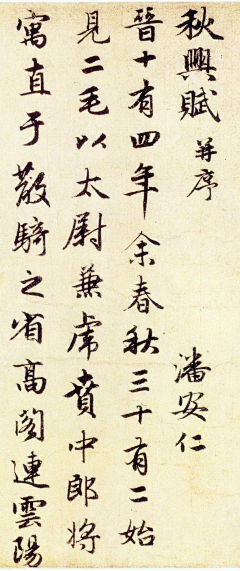 秋興賦 并序 潘安仁
晉十有四年余春秋三十有二始
見二毛以太尉兼虎賁中郎將
寓直于散騎之省高閣連雲陽